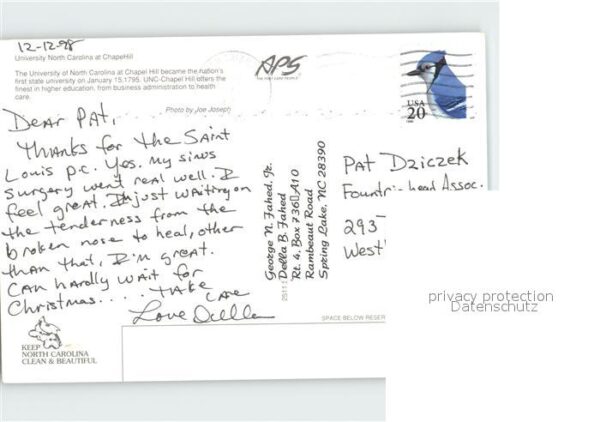 12-12-98
University North Carolina at ChapeHill
The University of North Carolina at Chapel Hill became the nation's
first state university on January 15,1795. UNC-Chapel Hill offers the
finest in higher education, from business administration to health
care.
Photo by Joe Joseph
APS
USA
20
Dear Pat,
Thanks for the Saint
Louis p.c. Yes. my sinus
surgery went real well. I
feel great. I'm just waiting on
the tenderness from the
broken nose to heal, other
than that, I'm great.
Can hardly wait for
Christmas.... Take
care
Love Della
George N. Fahed, Jr.
Della B. Fahed
Rt. 4, Box 736 A10
Rambeaut Road
Spring Lake, NC 28390
Pat Dziczek
Fountri-head Assoc.
293
West
25111
SPACE BELOW RESER
KEEP
NORTH CAROLINA
CLEAN & BEAUTIFUL
privacy protection
Datenschutz